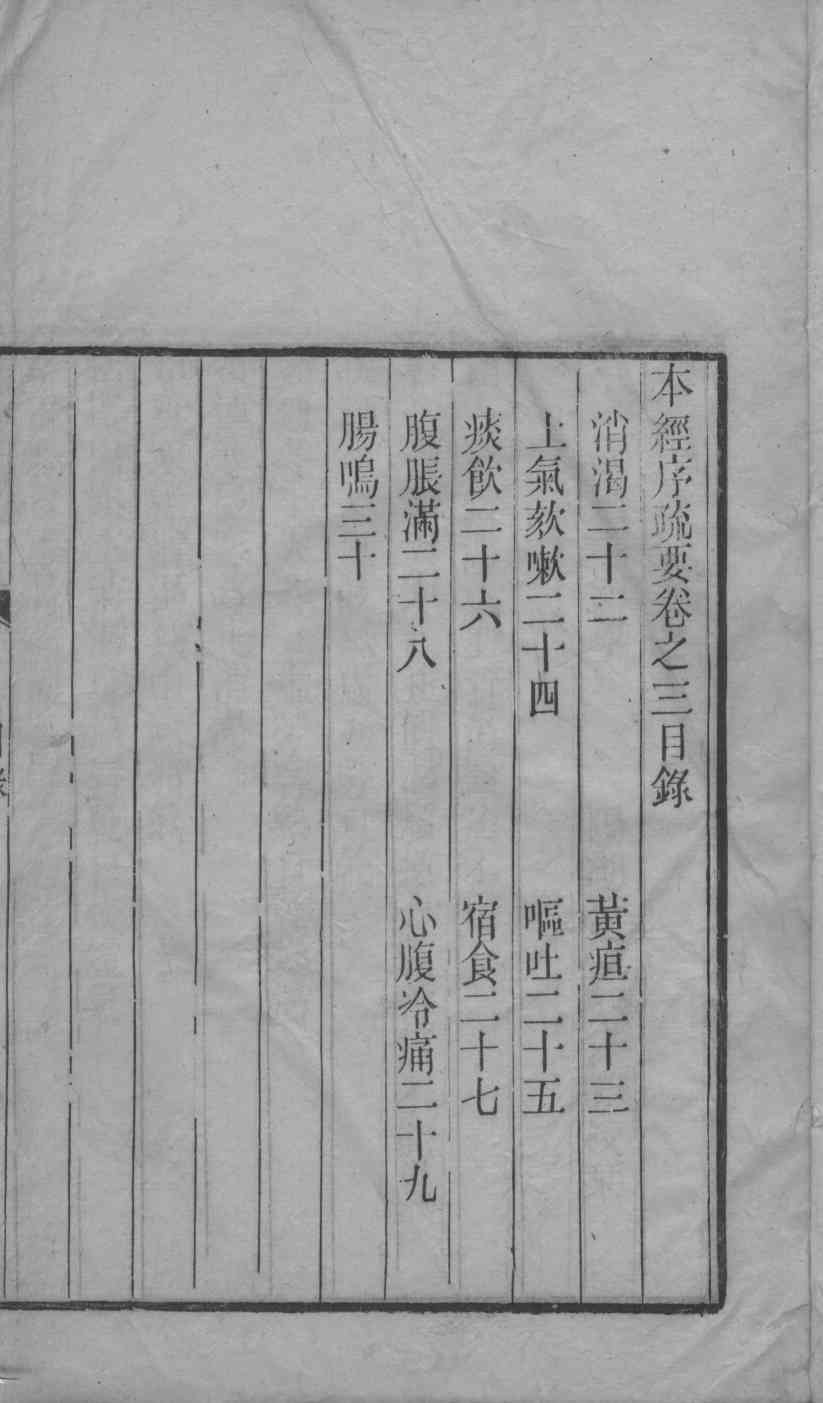 本經序疏要卷之三目錄
消渴二十二　黃疸二十三
上氣欬嗽二十四　嘔吐二十五
痰飲二十六　宿食二十七
腹脹滿二十八　心腹冷痛二十九
腸鳴三十